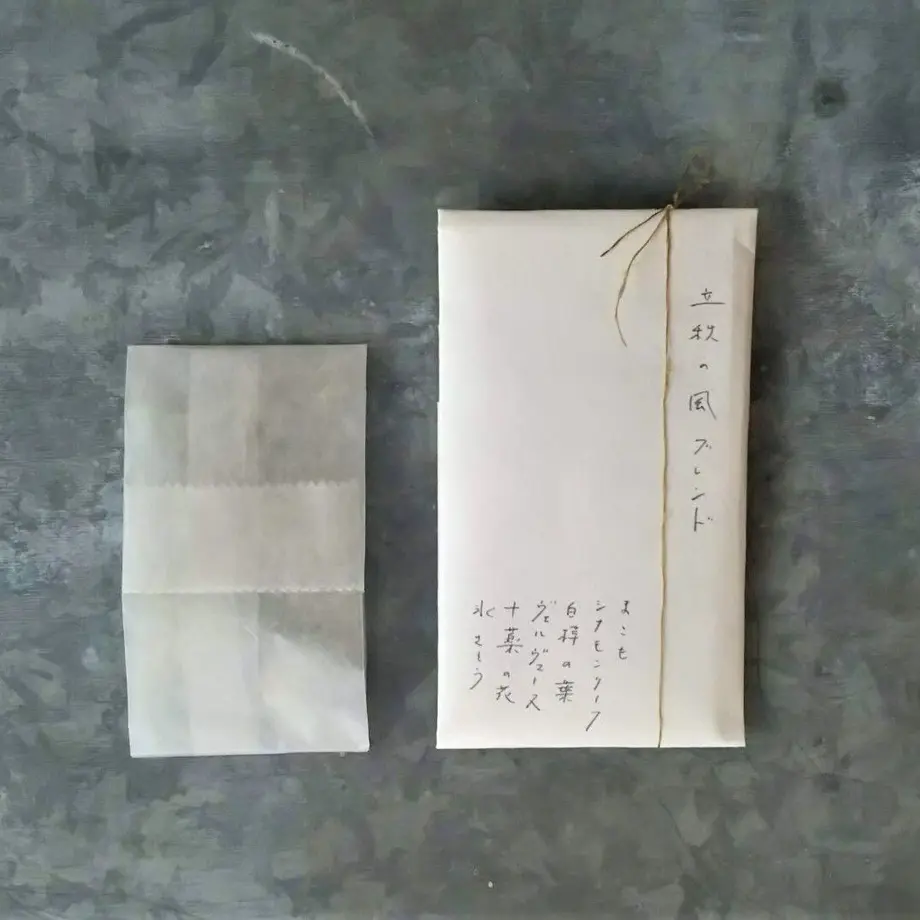 立秋の風ブレンド
まこも
シナモンリーフ
白樺の葉
ヴェルヴェーヌ
十薬の花
氷さとう